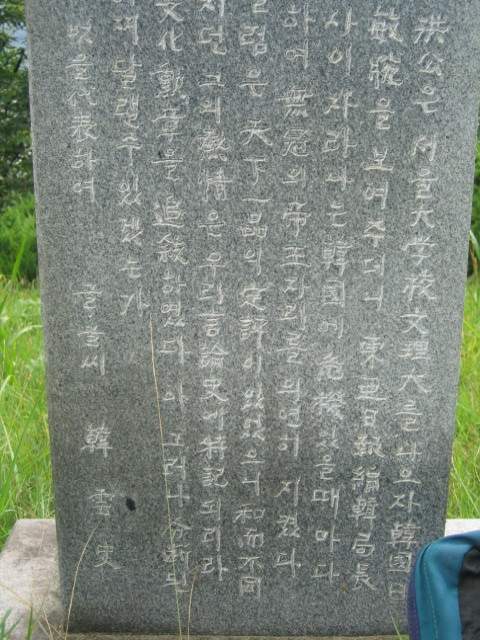 洪公은 서울大学校文理大를 나오자 韓國日
敏腕을 보여주더니 東亞日報編輯局長
사이 자라나는 韓國에 危機 을때마다
하여 無冠의 帝王자리를 의연히 지켰다
럼은 天下一品의 定評이있었으니 和而不同
지던 그의 熱情은 우리言論史에 特記되리라
文化勳章을 追敍하였다 그러나
달랠수있겠는가
벗을代表하여 글 글씨 韓雲史